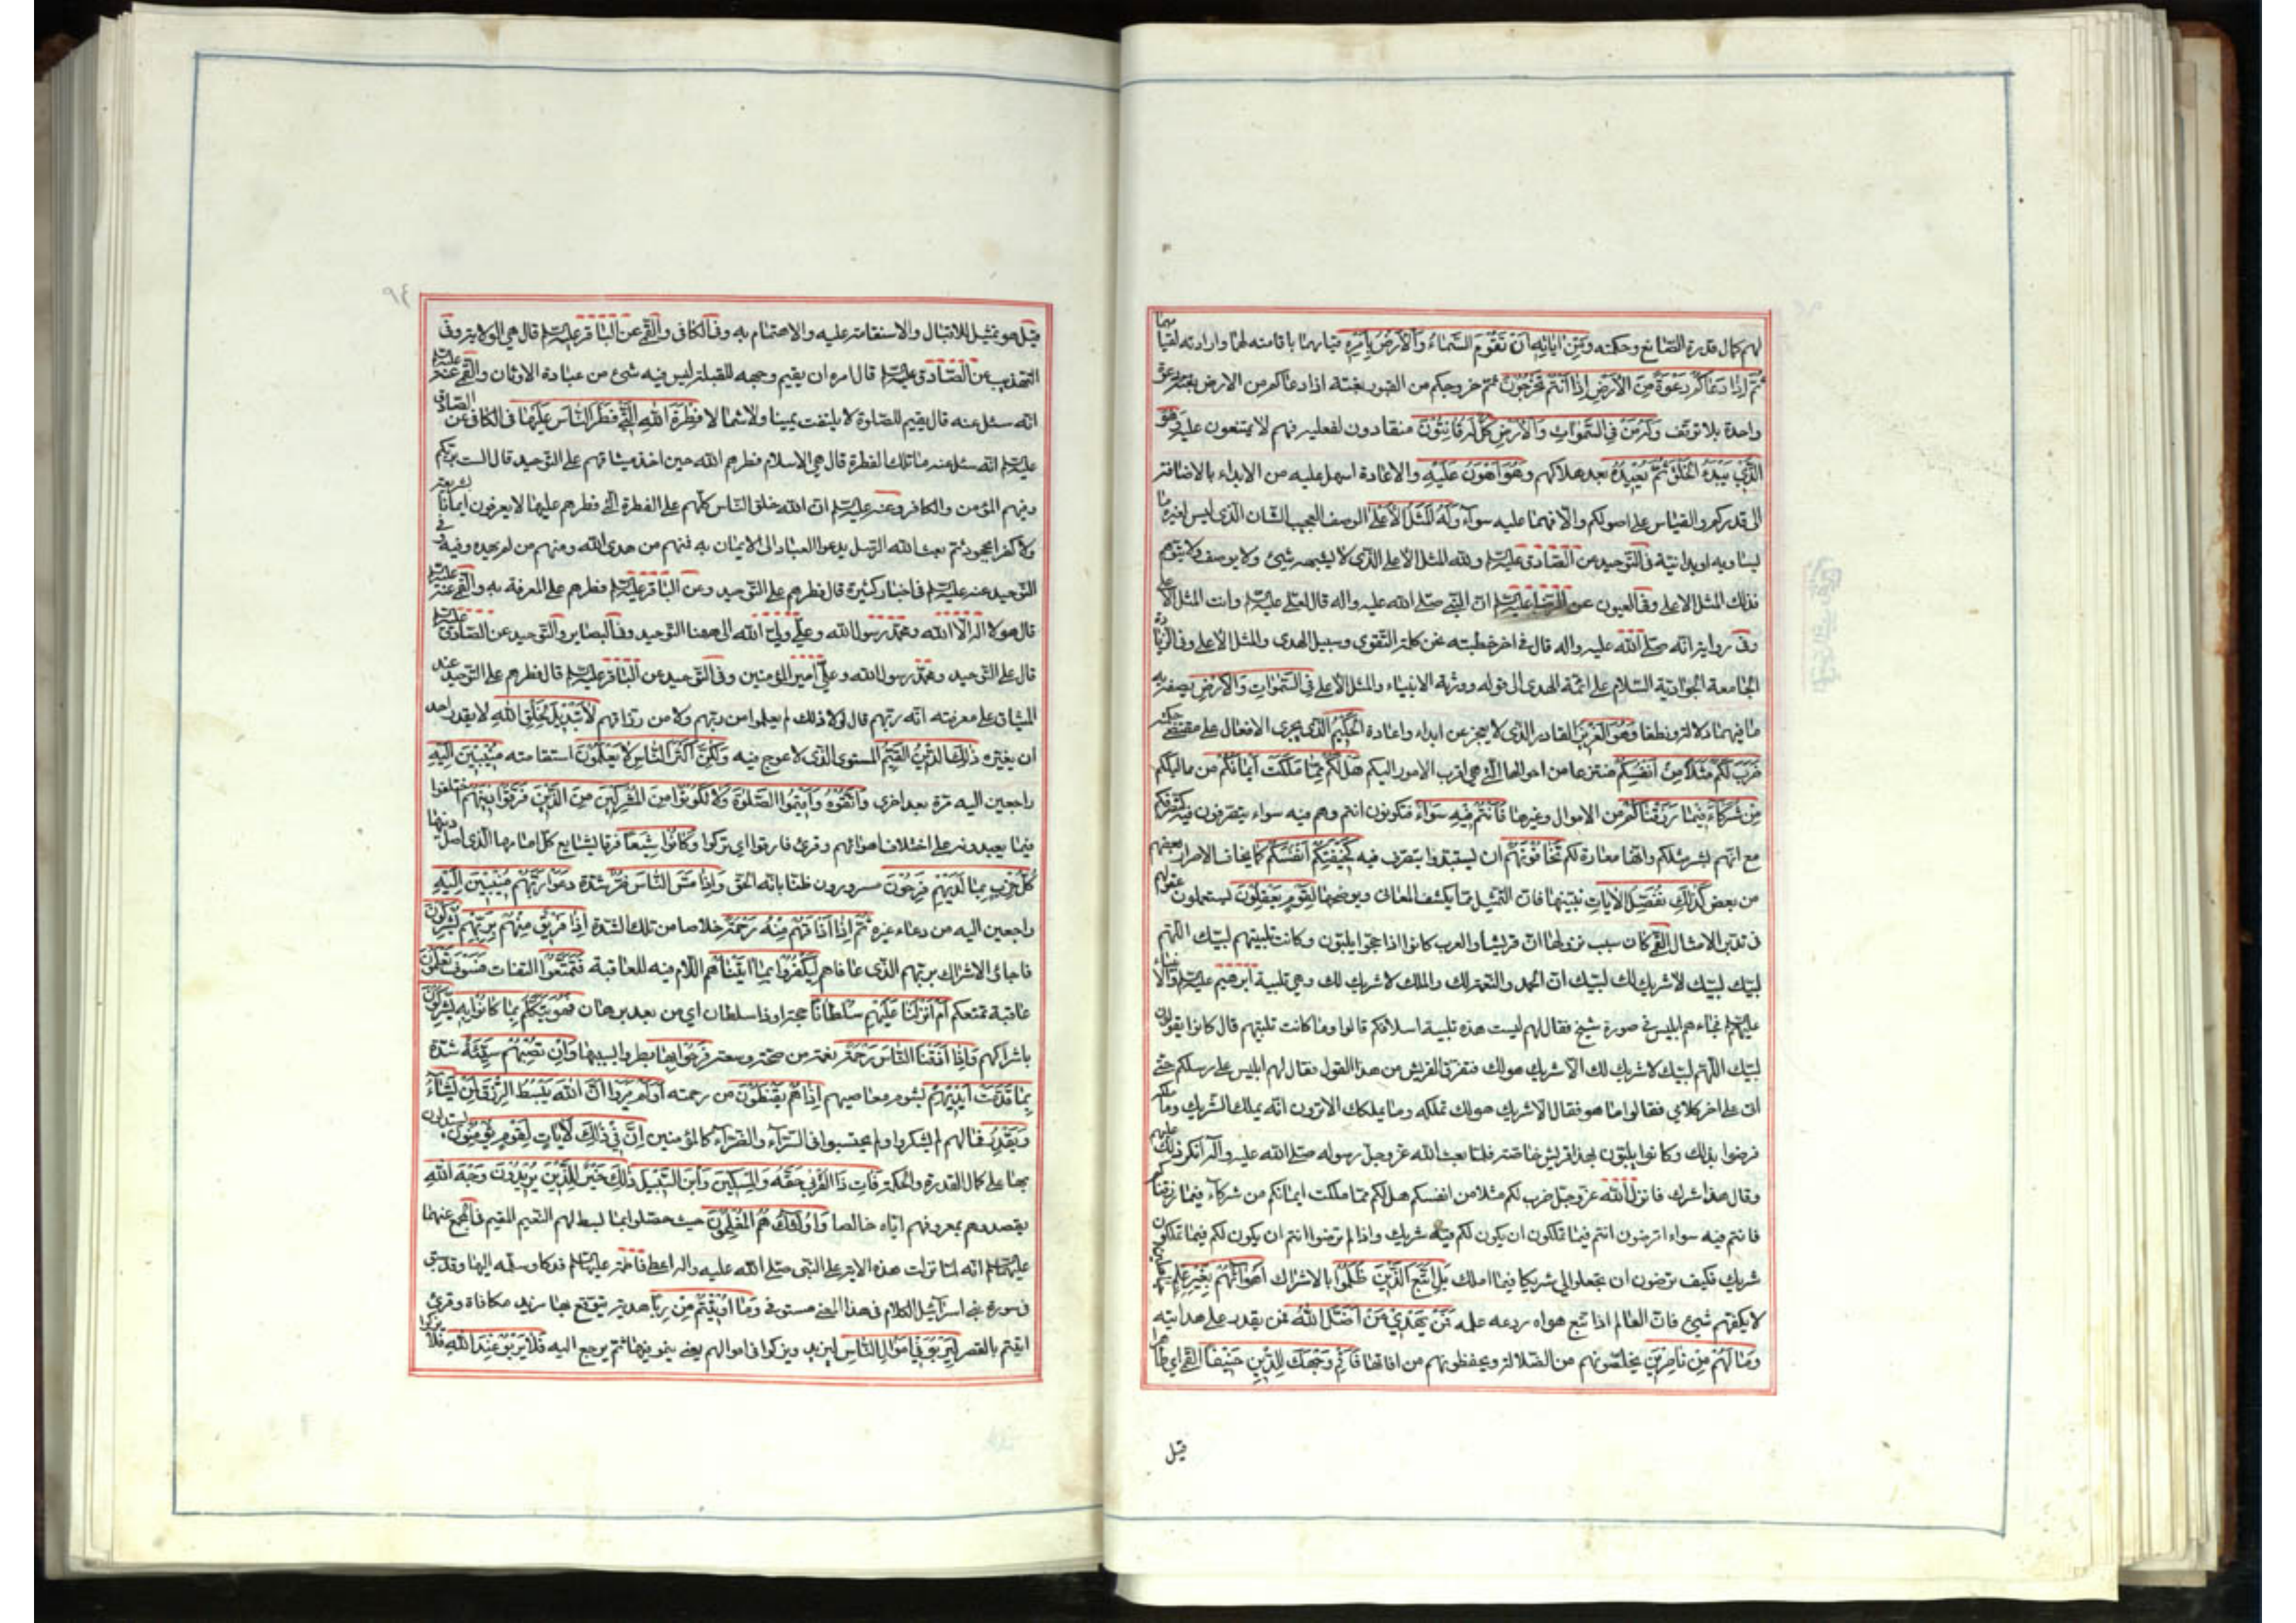 لهم كمال قدرة الصانع وحكمته وَمِنْ اٰيَاتِهٖ اَنْ تَقُوْمَ السَّمَاءُ وَالْاَرْضُ بِاَمْرِهٖ قيامهما باقامته لهما وارادته لقيامهما
ثُمَّ اِذَا دَعَاكُمْ دَعْوَةً مِنَ الْاَرْضِ اِذَا اَنْتُمْ تَخْرُجُوْنَ ثم خروجكم من القبور بغتة اذا دعاكم من الارض دعوة
واحدة بلا توقف وَلَهُ مَنْ فِي السَّمٰوَاتِ وَالْاَرْضِ كُلٌّ لَهُ قَانِتُوْنَ منقادون لفعله فيهم لا يمتنعون عليه وَهُوَ
الَّذِيْ يَبْدَؤُ الْخَلْقَ ثُمَّ يُعِيْدُهُ بعد هلاكهم وَهُوَ اَهْوَنُ عَلَيْهِ والاعادة اسهل عليه من الابداء بالاضافة
الى قدركم والقياس على اصولكم والا فهما عليه سواء وَلَهُ الْمَثَلُ الْاَعْلٰى الوصف العجيب الشان الذي ليس لغيره ما
يساويه او يدانيه في التوحيد عن الصادق عليه السلم ولله المثل الاعلى الذي لا يشبهه شيئ ولا يوصف ولا يتوهم
فذلك المثل الاعلى وفي العيون عن الرضا عليه السلم ان النبي صلى الله عليه واله قال لعلي عليه السلم وانت المثل الاعلى
وفي رواية انه صلى الله عليه واله قال في اخر خطبته نحن كلمة التقوى وسبيل الهدى والمثل الاعلى وفي الزيارة
الجامعة الجوادية السلام على ائمة الهدى الى قوله وورثة الانبياء والمثل الاعلى فِي السَّمٰوَاتِ وَالْاَرْضِ يصفه به
ما فيهما دلالة ونطقا وَهُوَ الْعَزِيْزُ القادر الذي لا يعجز عن ابداء واعادة الْحَكِيْمُ الذي يجري الافعال على مقتضى حكمته
ضَرَبَ لَكُمْ مَثَلًا مِنْ اَنْفُسِكُمْ منتزعا من احوالها التي هي اقرب الامور اليكم هَلْ لَكُمْ مِمَّا مَلَكَتْ اَيْمَانُكُمْ من مماليككم
مِنْ شُرَكَاءَ فِيْمَا رَزَقْنَاكُمْ من الاموال وغيرها فَاَنْتُمْ فِيْهِ سَوَاءٌ فتكونون انتم وهم فيه سواء يتصرفون فيه كتصرفكم
مع انهم بشر مثلكم وانها معارة لكم تَخَافُوْنَهُمْ ان يستبدوا بتصرف فيه كَخِيْفَتِكُمْ اَنْفُسَكُمْ كما يخاف الاحرار بعضهم
من بعض كَذٰلِكَ نُفَصِّلُ الْاٰيَاتِ نبينها فان التمثيل مما يكشف المعاني ويوضحها لِقَوْمٍ يَعْقِلُوْنَ يستعملون عقولهم
في تدبر الامثال القمي كان سبب نزولها ان قريشا والعرب كانوا اذا حجوا يلبون وكانت تلبيتهم لبيك اللهم
لبيك لبيك لا شريك لك لبيك ان الحمد والنعمة لك والملك لا شريك لك وهي تلبية ابرهيم عليه السلم والانبياء
عليهم السلم فجاءهم ابليس في صورة شيخ فقال لهم ليست هذه تلبية اسلافكم قالوا وما كانت تلبيتهم قال كانوا يقولون
لبيك اللهم لبيك لا شريك لك الا شريك هو لك فتفرق القريش من هذا القول فقال لهم ابليس على رسلكم حتى
اتى على اخر كلامي فقالوا ما هو فقال الا شريك هو لك تملكه وما يملكك الا ترون انه يملك الشريك وما ملكه
فرضوا بذلك وكانوا يلبون بهذا قريش خاصة فلما بعث الله عز وجل رسوله صلى الله عليه وآله انكر ذلك عليهم
وقال هذا شرك فانزل الله عز وجل ضرب لكم مثلا من انفسكم هل لكم مما ملكت ايمانكم من شركاء فيما رزقناكم
فانتم فيه سواء اترضون انتم فيما تملكون ان يكون لكم فيه شريك واذا لم ترضوا انتم ان يكون لكم فيما تملكون
شريك فكيف ترضون ان تجعلوا لي شريكا فيما املك بَلِ اتَّبَعَ الَّذِيْنَ ظَلَمُوْا بالاشراك اَهْوَائَهُمْ بِغَيْرِ عِلْمٍ
لا يكفهم شيئ فان العالم اذا تبع هواه ردعه علمه فَمَنْ يَهْدِيْ مَنْ اَضَلَّ اللهُ فمن يقدر على هدايته
وَمَا لَهُمْ مِنْ نَاصِرِيْنَ يخلصونهم من الضلالة ويحفظونهم من افاتها فَاَقِمْ وَجْهَكَ لِلدِّيْنِ حَنِيْفًا القمي اي طاهرا
قيل
٩٤
قيل هو تمثيل للاقبال والاستقامة عليه والاهتمام به وفي الكافي والقمي عن الباقر عليه السلم قال هي الولاية وفي
التهذيب عن الصادق عليه السلم قال امره ان يقيم وجهه للقبلة ليس فيه شئ من عبادة الاوثان والقمي عنه عليه السلم
انه سئل عنه قال يقيم للصلوة لا يلتفت يمينا ولا شمالا فِطْرَةَ اللهِ الَّتِيْ فَطَرَ النَّاسَ عَلَيْهَا في الكافي عن الصادق
عليه السلم انه سئل عنه ما تلك الفطرة قال هي الاسلام فطرهم الله حين اخذ ميثاقهم على التوحيد قال الست بربكم
وفيهم المؤمن والكافر وعنه عليه السلم ان الله خلق الناس كلهم على الفطرة التي فطرهم عليها لا يعرفون ايمانا بشريعة
ولا كفرا بجحود ثم بعث الله الرسل يدعوا العباد الى الايمان به فمنهم من هدى الله ومنهم من لم يهده وفيه في
التوحيد عنه عليه السلم في اخبار كثيرة قال فطرهم على التوحيد وعن الباقر عليه السلم فطرهم على المعرفة به والقمي عنه عليه السلم
قال هو لا اله الا الله ومحمد رسول الله وعلي ولي الله الى ههنا التوحيد وفي البصاير والتوحيد عن الصادق عليه السلم
قال على التوحيد ومحمد رسول الله وعلي امير المؤمنين وفي التوحيد عن الباقر عليه السلم قال فطرهم على التوحيد عند
الميثاق على معرفته انه ربهم قال لولا ذلك لم يعلموا من ربهم ولا من رزاقهم لَا تَبْدِيْلَ لِخَلْقِ اللهِ لا يقدر احد
ان يغيره ذٰلِكَ الدِّيْنُ الْقَيِّمُ المستوى الذي لا عوج فيه وَلٰكِنَّ اَكْثَرَ النَّاسِ لَا يَعْلَمُوْنَ استقامته مُنِيْبِيْنَ اِلَيْهِ
راجعين اليه مرة بعد اخرى وَاتَّقُوْهُ وَاَقِيْمُوا الصَّلٰوةَ وَلَا تَكُوْنُوْا مِنَ الْمُشْرِكِيْنَ مِنَ الَّذِيْنَ فَرَّقُوْا دِيْنَهُمْ اختلفوا
فيما يعبدونه على اختلاف اهوائهم وقرئ فارقوا اي تركوا وَكَانُوْا شِيَعًا فرقا يشايع كل امامها الذي اصل دينها
كُلُّ حِزْبٍ بِمَا لَدَيْهِمْ فَرِحُوْنَ مسرورون ظنا بانه الحق وَاِذَا مَسَّ النَّاسَ ضُرٌّ شدة دَعَوْا رَبَّهُمْ مُنِيْبِيْنَ اِلَيْهِ
راجعين اليه من دعاء غيره ثُمَّ اِذَا اَذَاقَهُمْ مِنْهُ رَحْمَةً خلاصا من تلك الشدة اِذَا فَرِيْقٌ مِنْهُمْ بِرَبِّهِمْ يُشْرِكُوْنَ
فاجائ الاشراك بربهم الذي عافاهم لِيَكْفُرُوْا بِمَا اٰتَيْنَاهُمْ اللام فيه للعاقبة فَتَمَتَّعُوْا التفات فَسَوْفَ تَعْلَمُوْنَ
عاقبة تمتعكم اَمْ اَنْزَلْنَا عَلَيْهِمْ سُلْطَانًا حجة او ذا سلطان اي من بعه برهان فَهُوَ يَتَكَلَّمُ بِمَا كَانُوْا بِهٖ يُشْرِكُوْنَ
باشراكهم وَاِذَا اَذَقْنَا النَّاسَ رَحْمَةً نعمة من صحة وسعة فَرِحُوْا بِهَا بطروا بسببها وَاِنْ تُصِبْهُمْ سَيِّئَةٌ شدة
بِمَا قَدَّمَتْ اَيْدِيْهِمْ بشوم معاصيهم اِذَا هُمْ يَقْنَطُوْنَ من رحمته اَوَلَمْ يَرَوْا اَنَّ اللهَ يَبْسُطُ الرِّزْقَ لِمَنْ يَشَاءُ
وَيَقْدِرُ فما لهم لم يشكروا ولم يحتسبوا في السراء والضراء كالمؤمنين اِنَّ فِيْ ذٰلِكَ لَاٰيَاتٍ لِقَوْمٍ يُؤْمِنُوْنَ يستدلون
بها على كمال القدرة والحكمة فَاٰتِ ذَا الْقُرْبٰى حَقَّهُ وَالْمِسْكِيْنَ وَابْنَ السَّبِيْلِ ذٰلِكَ خَيْرٌ لِلَّذِيْنَ يُرِيْدُوْنَ وَجْهَ اللهِ
يقصدوهم بمعروفهم اياه خالصا وَاُولٰئِكَ هُمُ الْمُفْلِحُوْنَ حيث حصلوا بما بسط لهم النعيم المقيم في المجمع عنهما
عليهما السلم انه لما نزلت هذه الاية على النبي صلى الله عليه واله اعطى فاطمة عليها السلم فدكا وسلمه اليها وقد سبق
في سورة بني اسرائيل الكلام في هذا المعنى مستوفى وَمَا اٰتَيْتُمْ مِنْ رِبًا هدية يتوقع بها مزيد مكافاة وقرئ
اتيتم بالقصر لِيَرْبُوَ فِيْ اَمْوَالِ النَّاسِ ليزيد ويزكوا في اموالهم يعني ينمو فيها ثم يرجع اليه فَلَا يَرْبُوْ عِنْدَ اللهِ فلا يزكوا